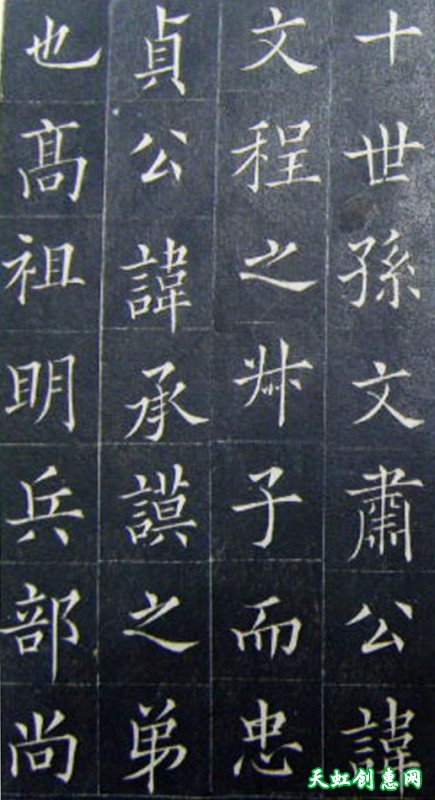 十世孫文肅公諱
文程之叔子而忠
貞公諱承謨之弟
也高祖明兵部尚
天虹创惠网